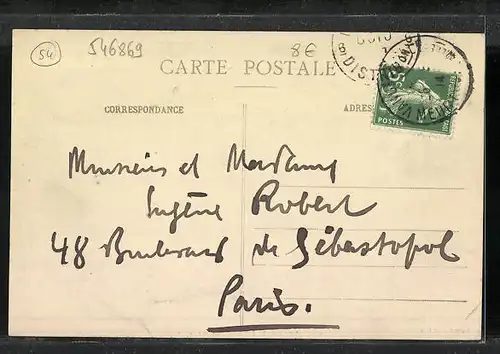 54
546869
8€
CARTE POSTALE
CORRESPONDANCE
ADRES
5c
POSTES
Monsieur et Madame
Eugène Robert
48 Boulevard de Sébastopol
Paris.